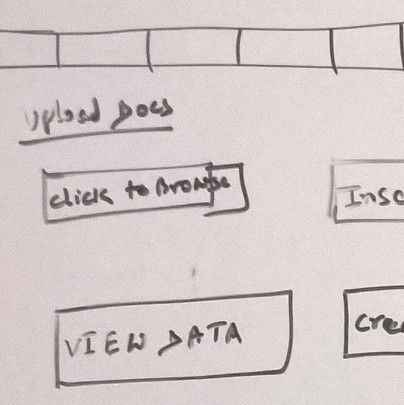 Upload Docs
Click to Browse
Inse
VIEW DATA
Crea